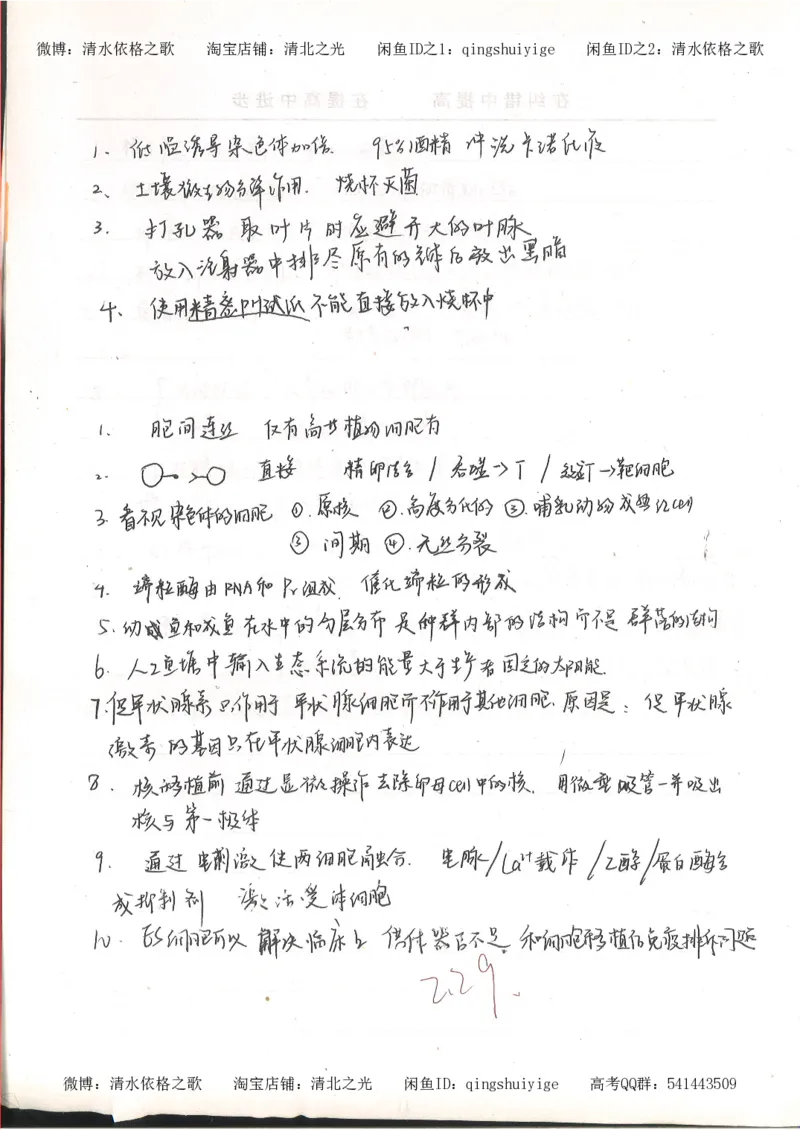 微博：清水依格之歌 淘宝店铺：清北之光 闲鱼ID之1：qingshuiyige 闲鱼ID之2：清水依格之歌
在纠错中提高 在提高中进步
1、低温诱导染色体加倍. 95%酒精 冲洗卡诺氏液
2、土壤微生物分解作用. 烧杯灭菌
3. 打孔器取叶片时应避开大的叶脉
放入注射器中排尽原有的气体后放出黑暗
4、使用精密PH试纸不能直接放入烧杯中
1. 胞间连丝 仅有高等植物细胞有
2. 直接 精卵结合 / 吞噬→T / 效应T→靶细胞
3. 看不见染色体的细胞 ①.原核 ②.高度分化的 ③.哺乳动物成熟红cell
③ 间期 ④.无丝分裂
4. 端粒酶由RNA和Pr组成. 催化端粒的形成
5. 幼鱼和成鱼在水中的分层分布是种群内部的结构而不是群落的结构
6. 人工鱼塘中输入生态系统的能量大于生产者固定的太阳能.
7.促甲状腺素只作用于甲状腺细胞而不作用于其他细胞.原因是：促甲状腺
激素的基因只在甲状腺细胞内表达
8. 核移植前通过显微操作去除卵母cell中的核. 用微型吸管一并吸出
核与第一极体
9. 通过电刺激使两细胞融合. 电脉/Ca²⁺载体/乙醇/蛋白酶合
成抑制剂 激活受体细胞
10. ES细胞可以解决临床上供体器官不足和细胞移植后免疫排斥问题
2.29.
微博：清水依格之歌 淘宝店铺：清北之光 闲鱼ID：qingshuiyige 高考QQ群：541443509